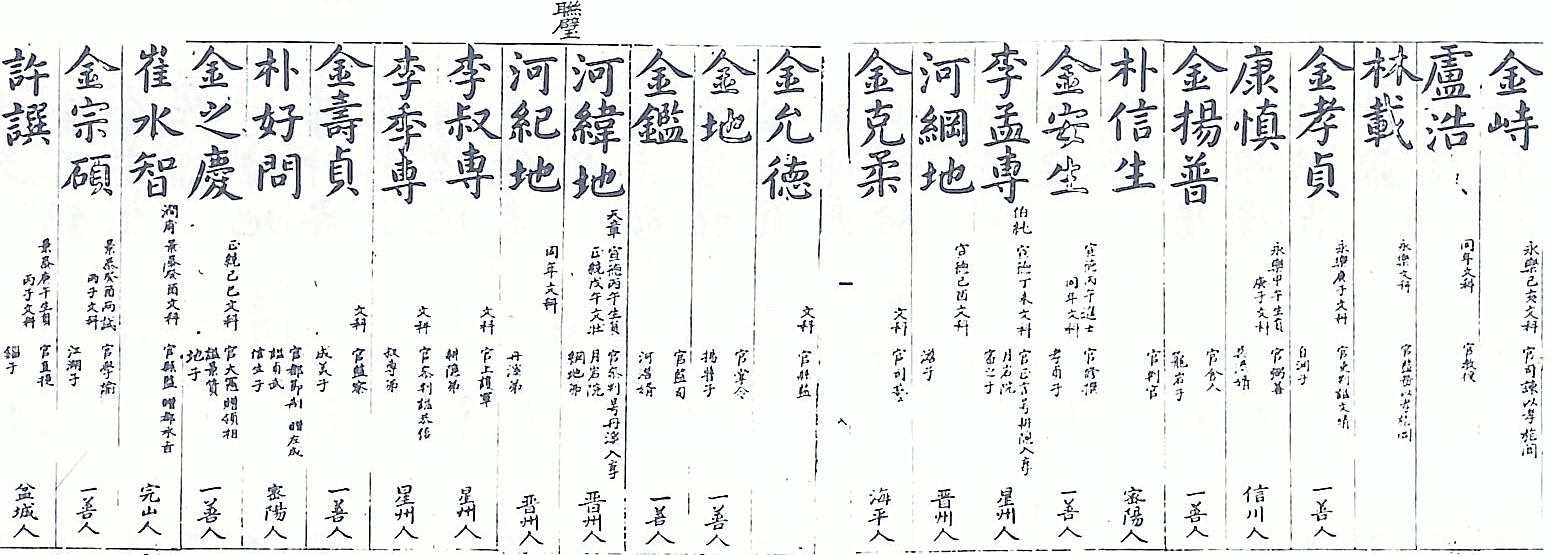 金峙 永樂己亥文科 官司諫以孝旌閭
盧浩 同年文科 官教授
林載 永樂文科 官監察以孝旌閭
金孝貞 永樂庚子文科 白澗子 官吏判諡文靖 一善人
康慎 永樂甲午生員 庚子文科 官弼善 信川人
金揚普 官舍人 龍岩子 一善人
朴信生 官判官 密陽人
金安生 宣德丙午進士 同年文科 官修撰 孝貞子 一善人
李孟專 伯純 宣德丁未文科 官正言号耕隱入享 月岩院 審之子 星州人
河綱地 宣德己酉文科 澹子 晋州人
金克柔 文科 官司藝 海平人
金允德 文科 官縣監
金地 官掌令 揚普子 一善人
金鑑 官監司 河澹婿 一善人
聯璧
河緯地 天章 宣德丙午生員 正統戊午文壯 官參判号丹溪入享 月岩院 綱地弟 晋州人
河紀地 同年文科 丹溪弟 晋州人
李叔專 文科 官上護軍 耕隱弟 星州人
李季專 文科 官參判諡恭信 叔專弟 星州人
金壽貞 文科 官監察 成美子 一善人
朴好問 官都節制 贈左成 諡貞武 信生子 密陽人
金之慶 正統己巳文科 官大憲贈領相 諡景質 地子 一善人
崔水智 潤甫 景泰癸酉文科 官縣監 贈都承旨 完山人
金宗碩 景泰癸酉兩試 丙子文科 官學諭 江湖子 一善人
許譔 景泰庚午生員 丙子文科 官直提 盆城人